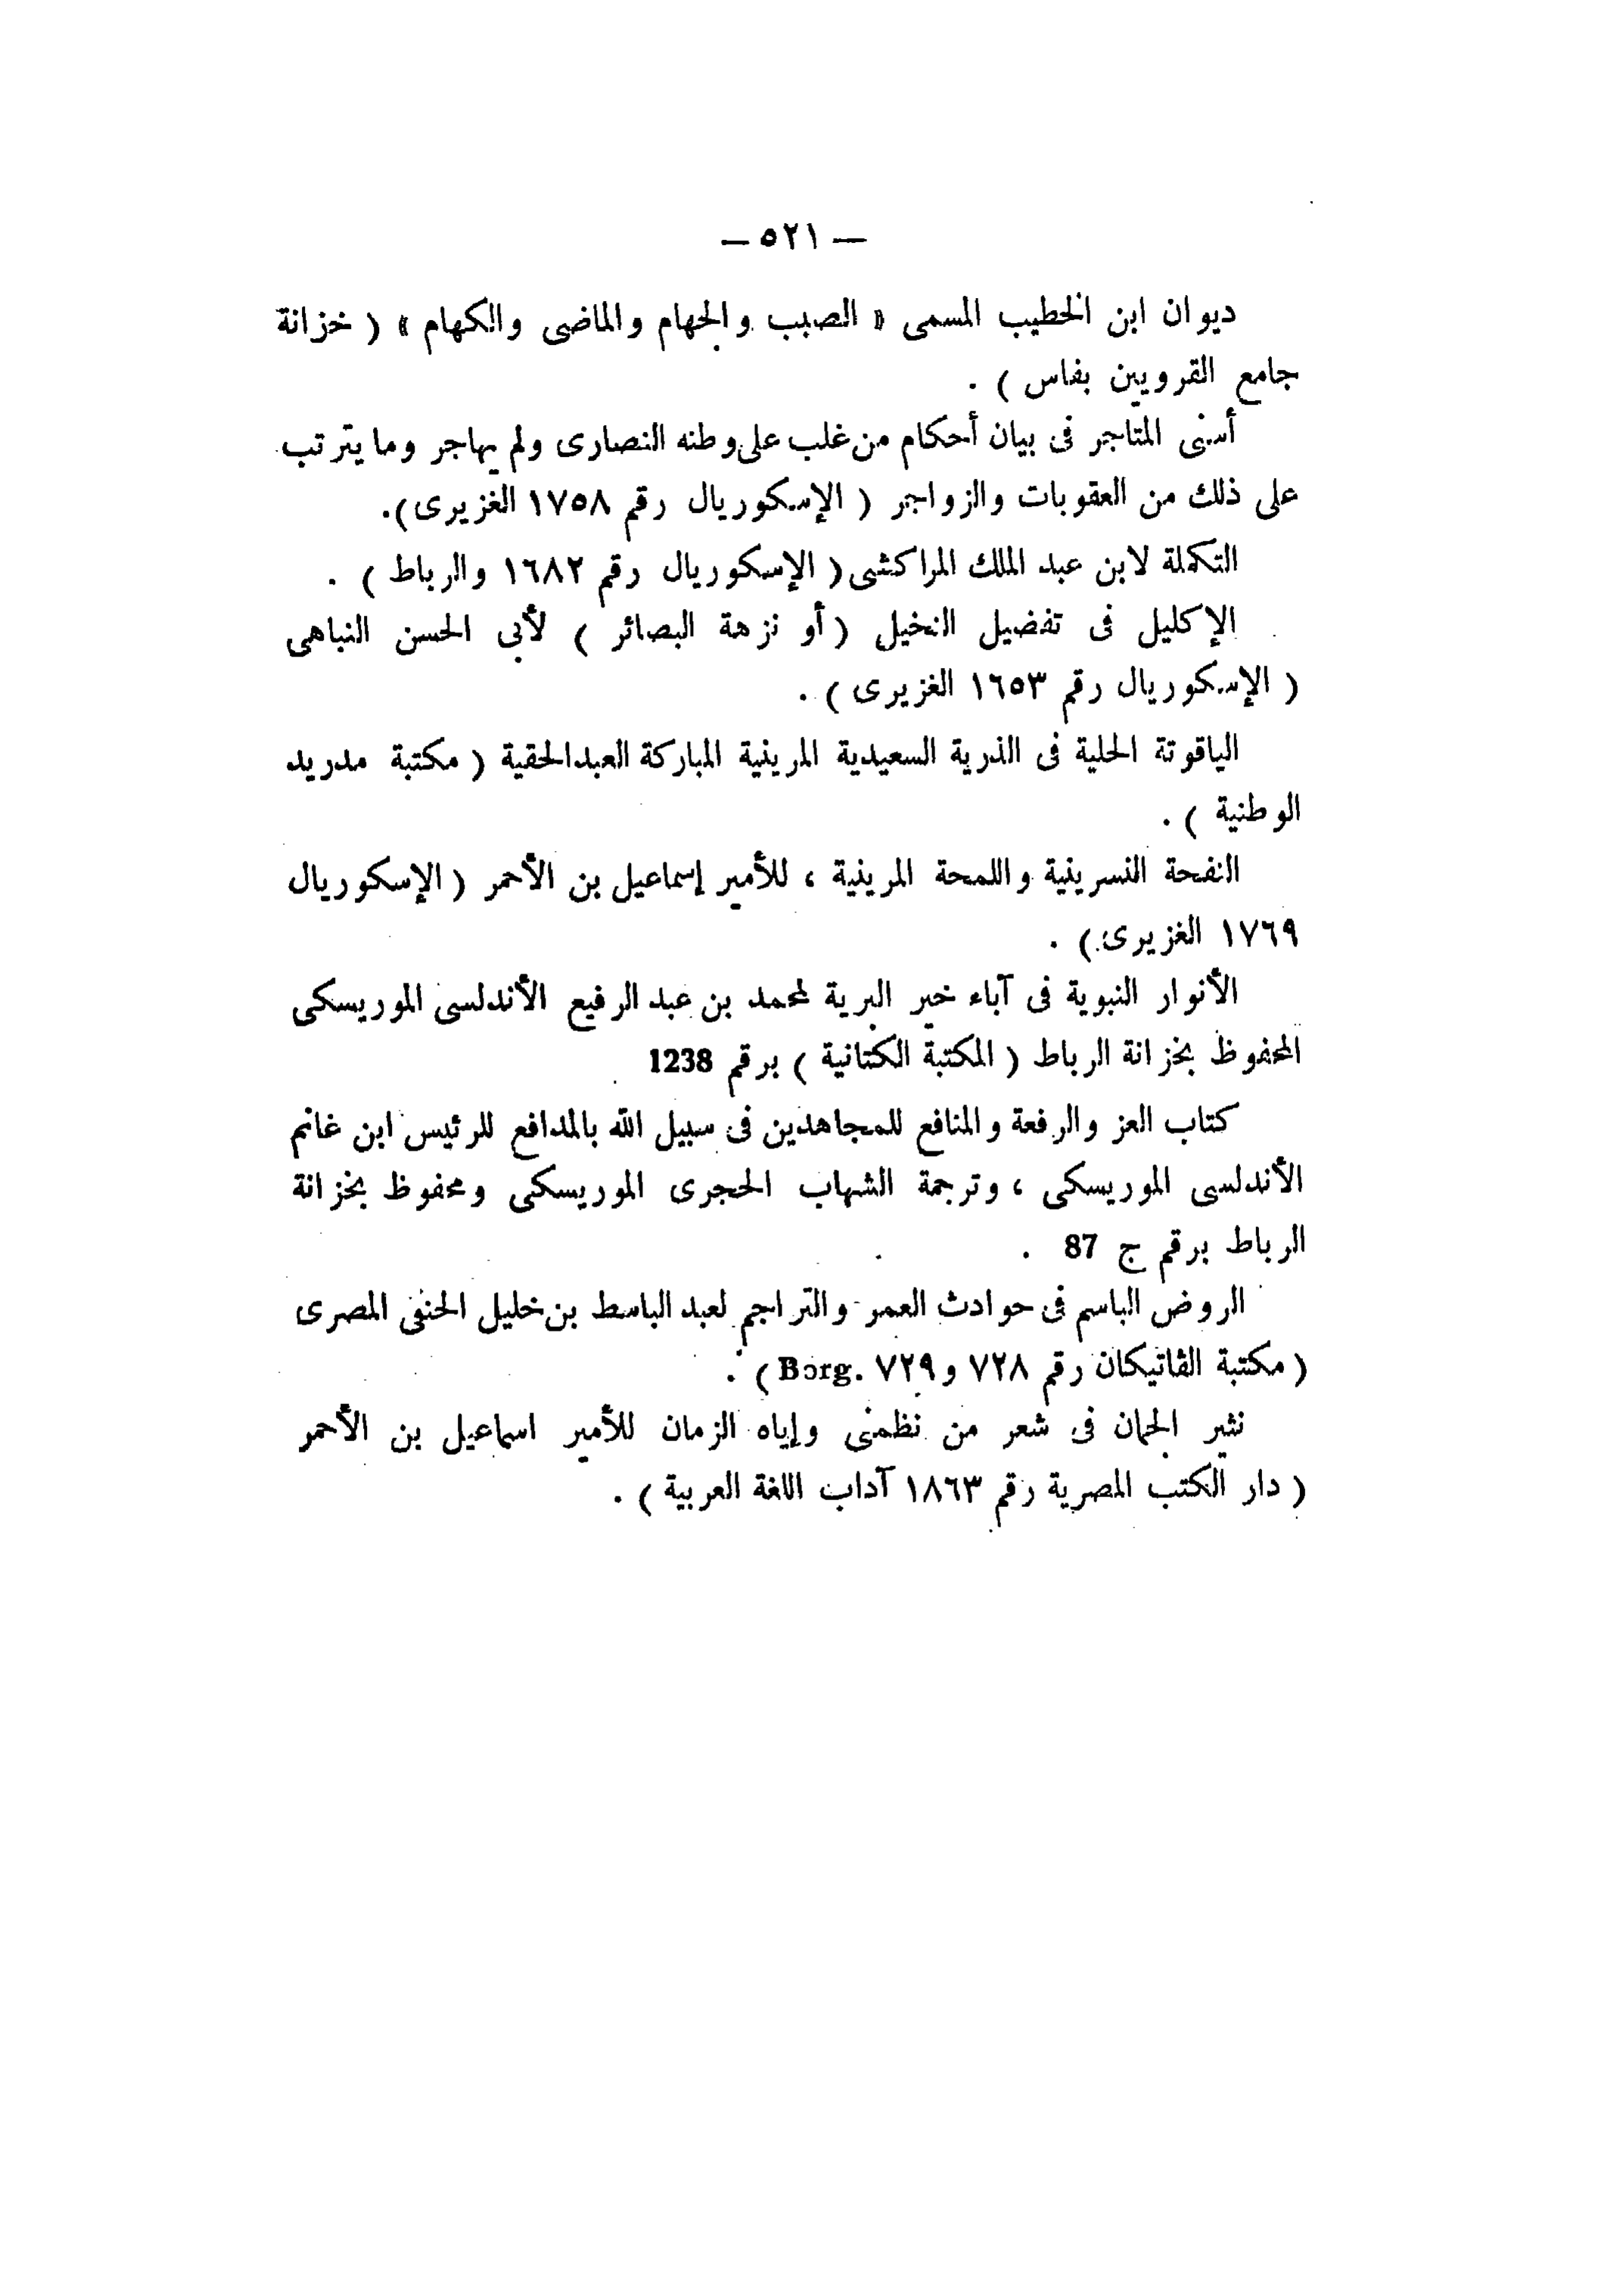 — ٥٢١ —
ديوان ابن الخطيب المسمى « الصيب والجهام والماضى والكهام » ( خزانة
جامع القرويين بفاس ) .
أسنى المتاجر فى بيان أحكام من غلب على وطنه النصارى ولم يهاجر وما يترتب
على ذلك من العقوبات والزواجر ( الإسكوريال رقم ١٧٥٨ الغزيرى ) .
التكملة لابن عبد الملك المراكشى ( الإسكوريال رقم ١٦٨٢ والرباط ) .
الإكليل فى تفضيل النخيل ( أو نزهة البصائر ) لأبى الحسن النباهى
( الإسكوريال رقم ١٦٥٣ الغزيرى ) .
الياقوتة الحلية فى الذرية السعيدية المرينية المباركة العبدالحقية ( مكتبة مدريد
الوطنية ) .
النفحة النسرينية واللمحة المرينية ، للأمير إسماعيل بن الأحمر ( الإسكوريال
١٧٦٩ الغزيرى ) .
الأنوار النبوية فى آباء خير البرية لمحمد بن عبد الرفيع الأندلسى الموريسكى
المحفوظ بخزانة الرباط ( المكتبة الكتانية ) برقم 1238
كتاب العز والرفعة والمنافع للمجاهدين فى سبيل الله بالمدافع للرئيس ابن غانم
الأندلسى الموريسكى ، وترجمة الشهاب الحجرى الموريسكى ومحفوظ بخزانة
الرباط برقم ج 87 .
الروض الباسم فى حوادث العمر والتراجم لعبد الباسط بن خليل الحنفى المصرى
( مكتبة الڤاتيكان رقم ٧٢٨ و ٧٢٩ Borg. ) .
نثير الجمان فى شعر من نظمنى وإياه الزمان للأمير اسماعيل بن الأحمر
( دار الكتب المصرية رقم ١٨٦٣ آداب اللغة العربية ) .